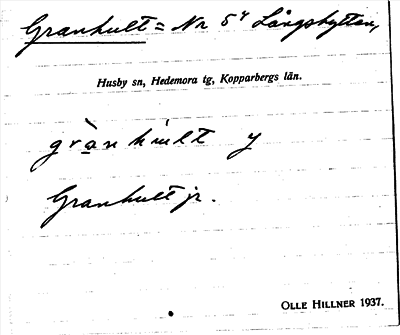 Granhult = Nr 5⁴ Långshyttan,
Husby sn, Hedemora tg, Kopparbergs län.
gràn hult y
Granhult jr.
OLLE HILLNER 1937.